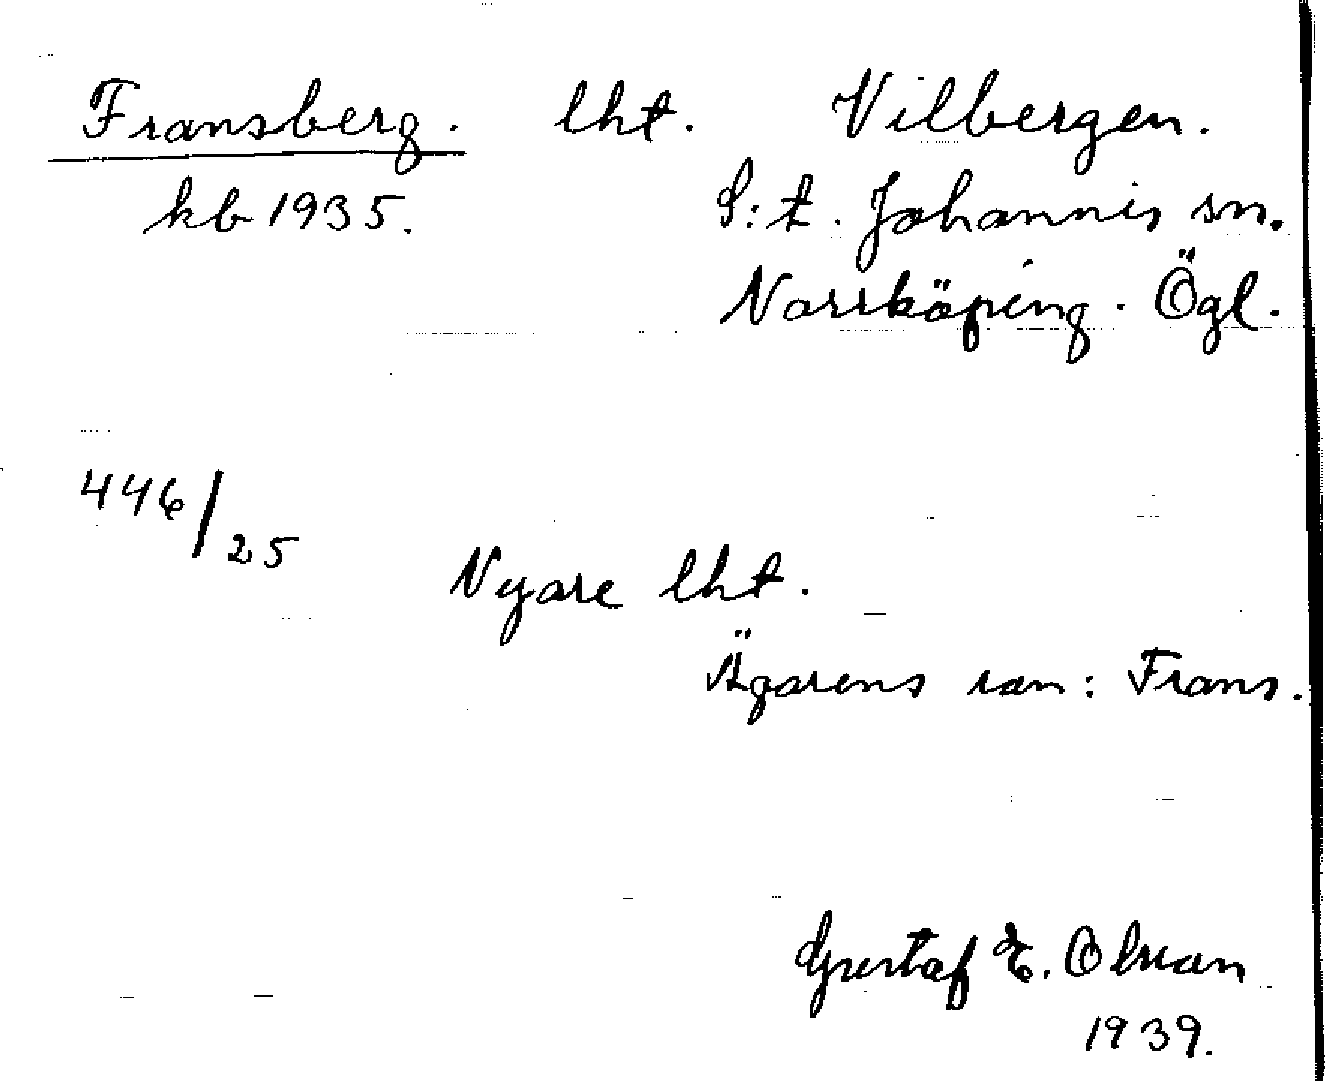 Fransberg. lht. Vilbergen.
kb 1935. S:t. Johannis sn.
Norrköping. Ögl.
446/25
Nyare lht.
Ägarens von: Frans.
Gustaf E. Olsson
1939.